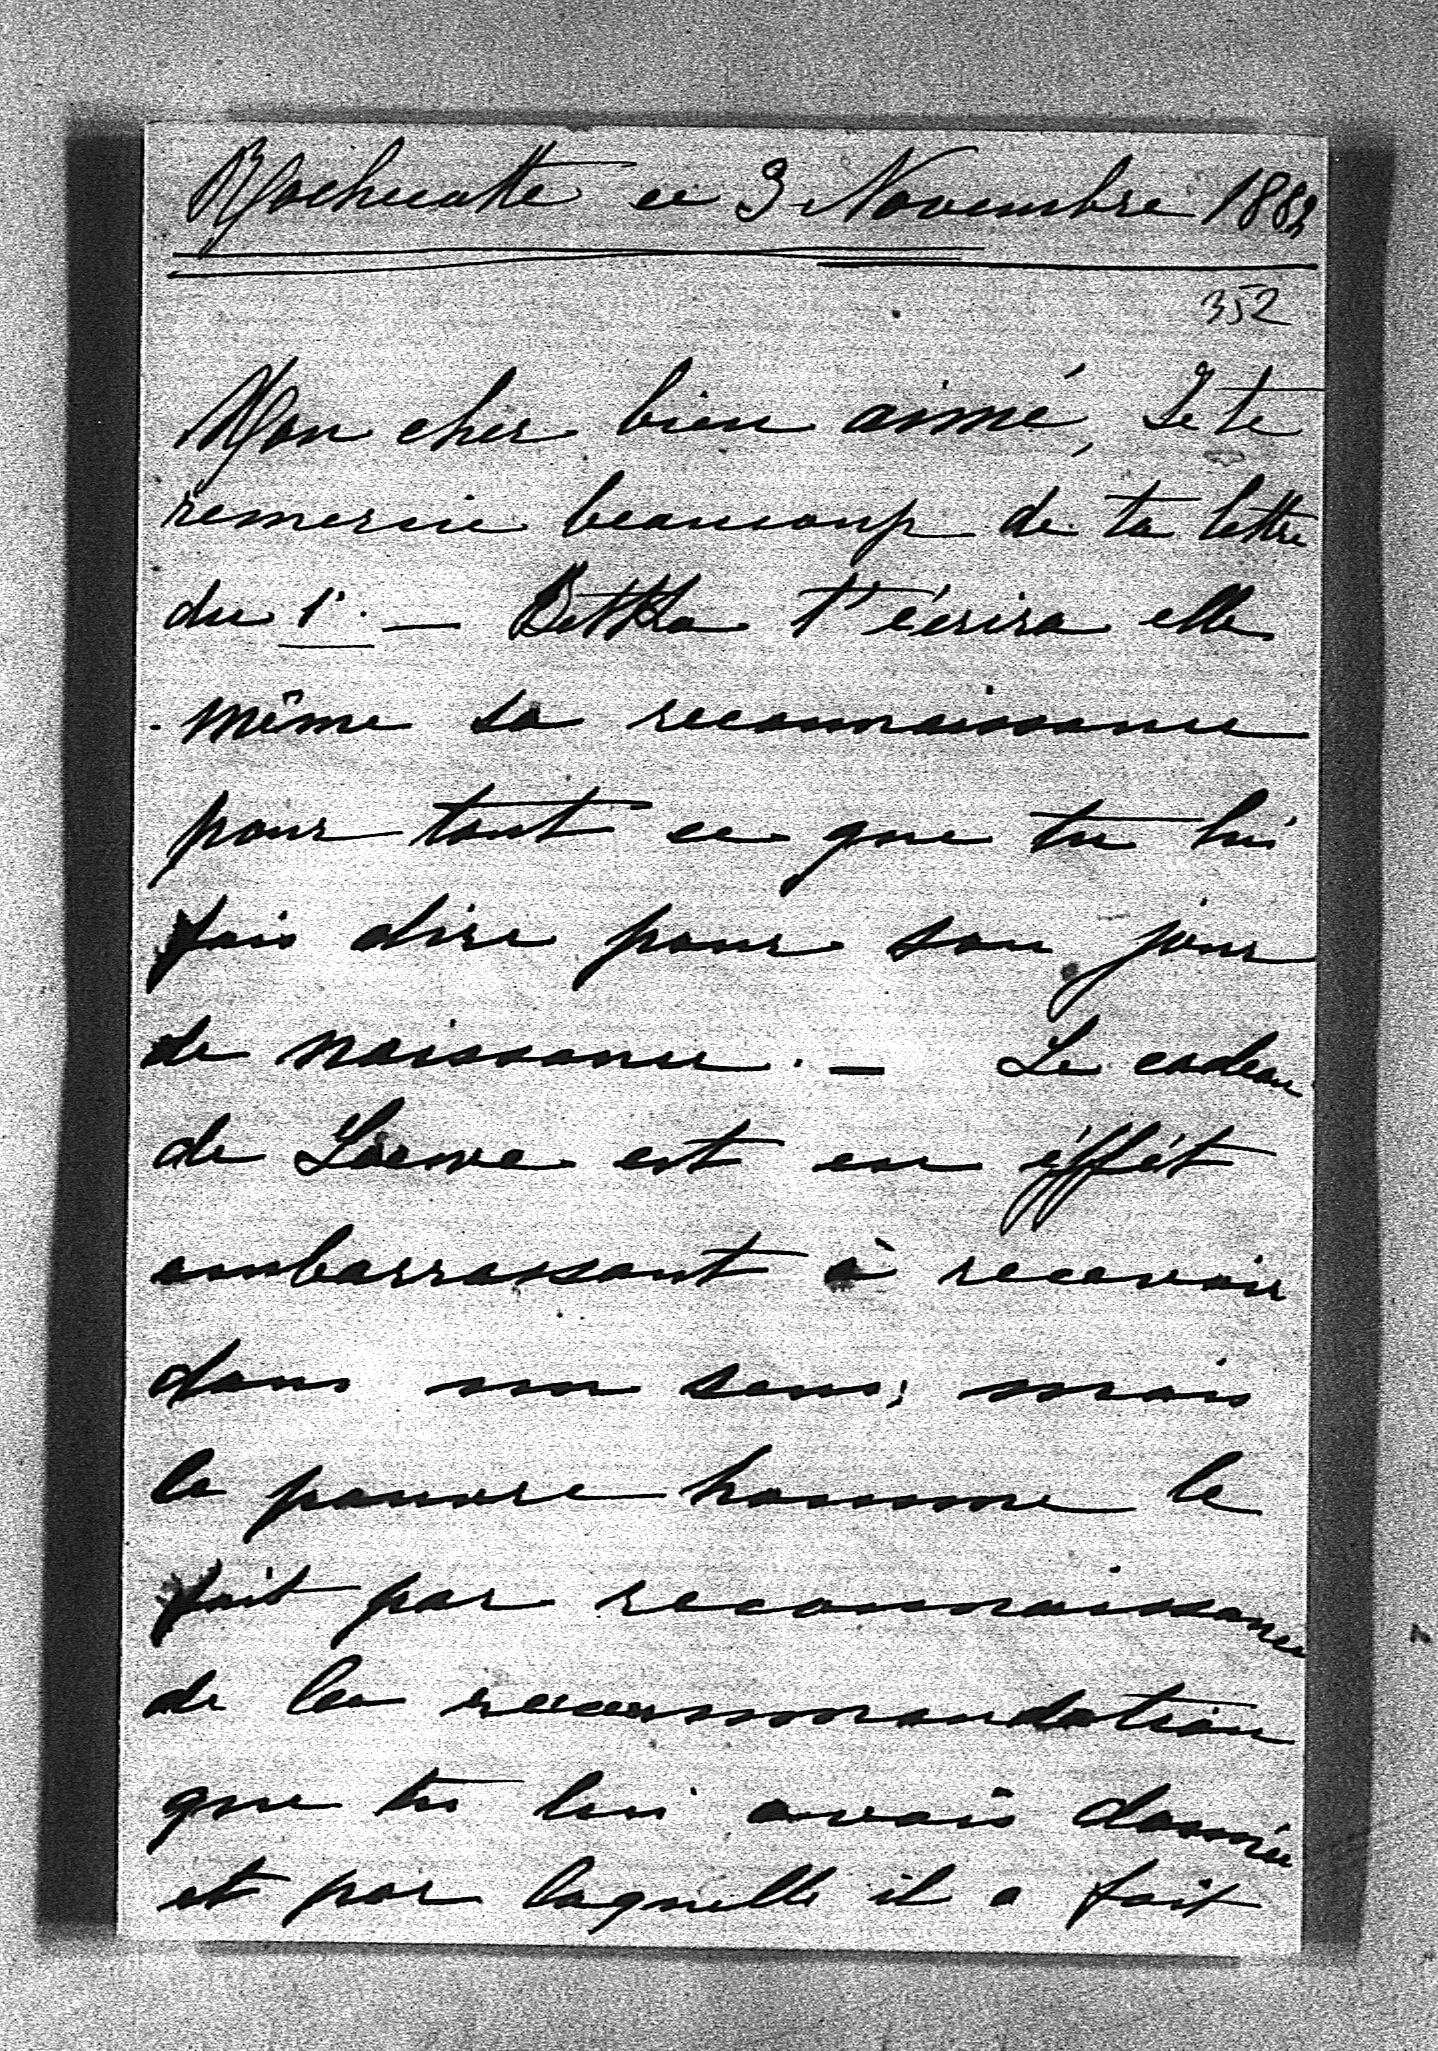 Rochecotte ce 3 Novembre 1882
352
Mon cher bien aimé, Je te
remercie beaucoup de ta lettre
du 1r. — Betka t'écrira elle
même sa reconnaissance
pour tout ce que tu lui
fais dire pour son jour
de naissance. — Le cadeau
de Loewe est en éffét
embarrassant à recevoir
dans un sens; mais
le pauvre homme le
fait par reconnaissance
de la recommandation
que tu lui avais donnée
et par laquelle il a fait